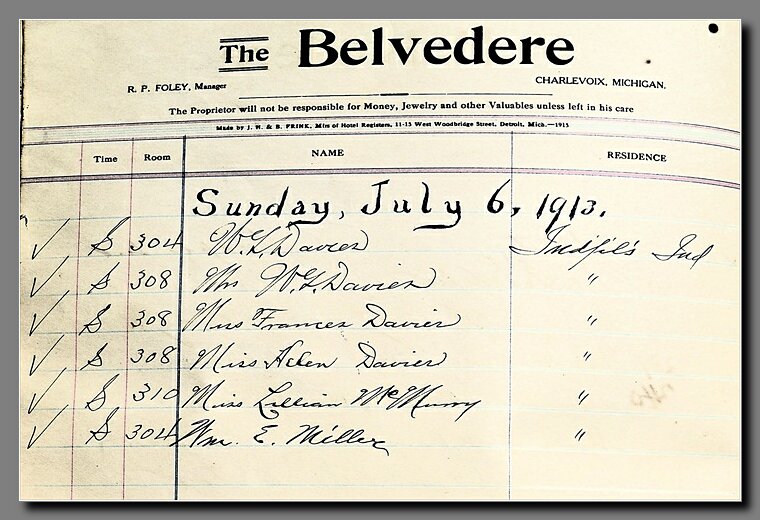 The Belvedere
R. P. FOLEY, Manager CHARLEVOIX, MICHIGAN.
The Proprietor will not be responsible for Money, Jewelry and other Valuables unless left in his care
Made by J. H. & B. FRINK, Mfrs of Hotel Registers, 11-15 West Woodbridge Street, Detroit, Mich.—1913
Time Room NAME RESIDENCE
Sunday, July 6, 1913.
✓ S 304 W. L. Davies Indpl's Ind
✓ S 308 Mrs W. L. Davies "
✓ S 308 Miss Frances Davies "
✓ S 308 Miss Helen Davies "
✓ S 310 Miss Lillian McMurry "
✓ S 304 Wm. E. Miller "